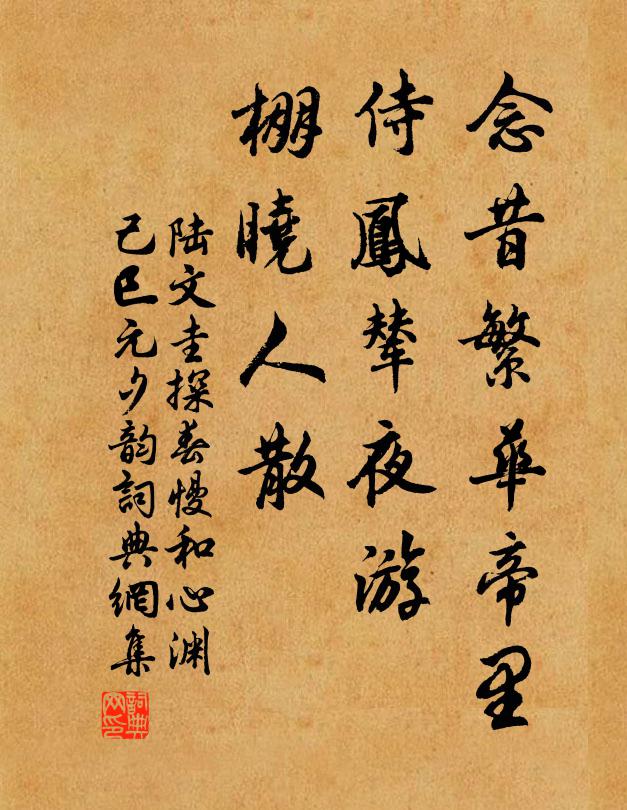 念昔繁華帝里
侍鳳輦夜游
棚曉人散
陆文圭探春慢和心渊
己巳元夕韵詞典網集
詞典網印